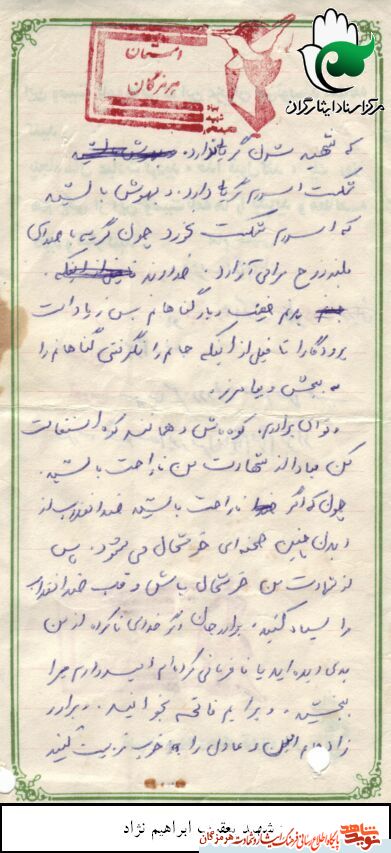 مرکز اسناد ایثارگران
استان
هرمزگان
که شهید شدن گریه ندارد.
شکست اسلام گریه دارد. و بهوش باشید
که اسلام شکست نخورد چون گریه با صدای
بلند روح مرا می آزارد. خداوند
بدنم ضعیف و بار گناهانم بس زیاد است
پروردگارا تا قبل از اینکه جانم را نگرفتی گناهانم را
به بخش و بیامرز.
و توای برادرم. کوه باش و همانند کوه استقامت
کن مبادا از شهادت من ناراحت باشید.
چون که اگر ناراحت باشید ضد انقلاب از
دیدن چنین صحنه ای خوشحال می شود. پس
از شهادت من خوشحال باش و قلب ضد انقلاب
را سیاه کنید. برادر جان اگر خدای ناکرده از من
بدی دیده اید یا نافرمانی کرده ام امیدوارم مرا
ببخشید. و برایم فاتحه بخوانید. و برادر
زاده هایم و عادل را به خوب تربیت کنید
شهید یعقوب ابراهیم نژاد
نوید شاهد
پایگاه اطلاع رسانی فرهنگ ایثار و شهادت هرمزگان